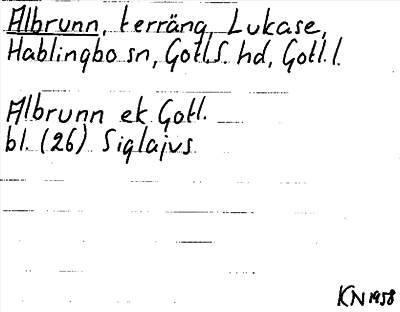 Albrunn, terräng Lukase,
Hablingbo sn, Gotl.S. hd, Gotl. l.
Albrunn ek Gotl.
bl. (26) Siglajvs
KN 1958